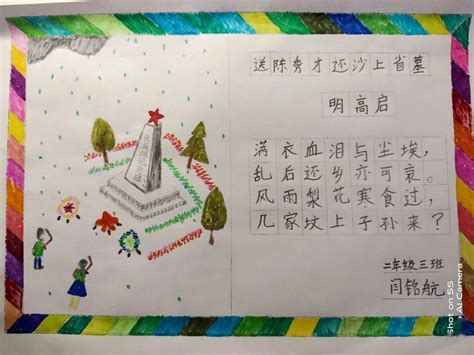 送陈秀才还沙上省墓
明高启
满衣血泪与尘埃,
乱后还乡亦可哀。
风雨梨花寒食过,
几家坟上子孙来?
二年级三班
闫铭航
Shot on S5
AI Camera